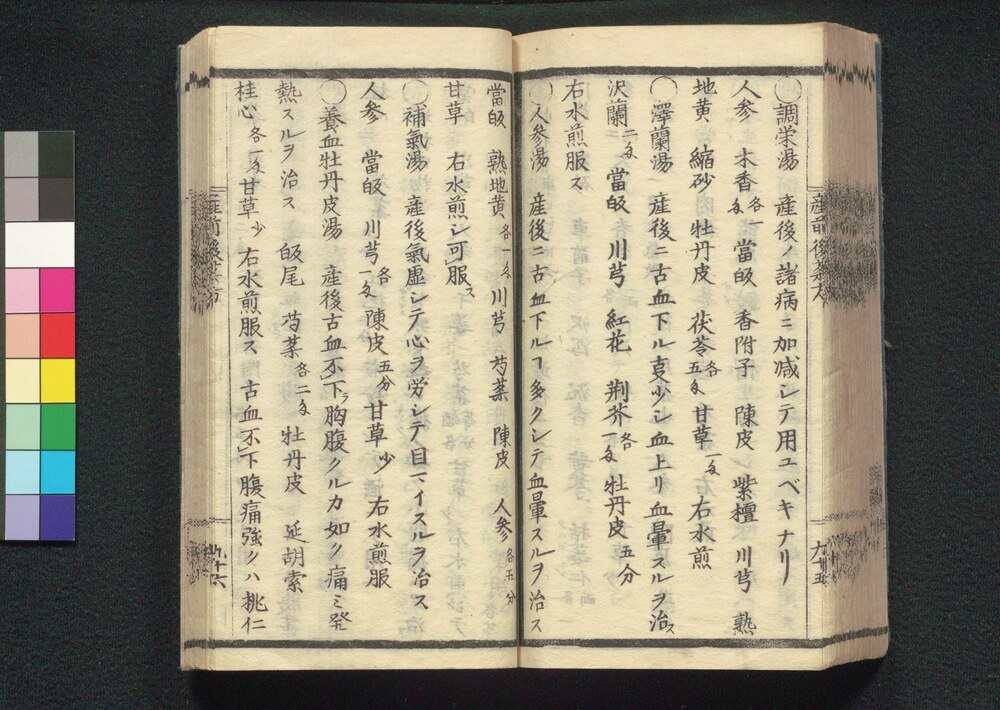 ○調栄湯　産後ノ諸病ニ加減シテ用ユベキナリ
人参　木香各一匁　當皈　香附子　陳皮　紫檀　川芎　熟
地黄　縮砂　牡丹皮　茯苓各五匁　甘草一匁　右水煎
○澤蘭湯　産後ニ古血下ル㕝少シ血上リ血暈スルヲ治ス
沢蘭二匁　當皈　川芎　紅花　荆芥各一匁　牡丹皮五分
右水煎服ス
○人参湯　産後ニ古血下ルヿ多クシテ血暈スルヲ治ス
當皈　熟地黄各一匁　川芎　芍薬　陳皮　人参各五分
甘草　右水煎シ可服ス
○補氣湯　産後氣虚シテ心ヲ労シテ目マイスルヲ治ス
人参　當皈　川芎各一匁　陳皮五分　甘草少　右水煎服
○養血牡丹皮湯　産後古血不下ラ胸腹クルカ如ク痛ミ発
熱スルヲ治ス　皈尾　芍薬各二匁　牡丹皮　延胡索
桂心各一匁　甘草少　右水煎服ス　古血不下腹痛強クハ桃仁
産前後薬方
九十五
産前後薬方
九十六